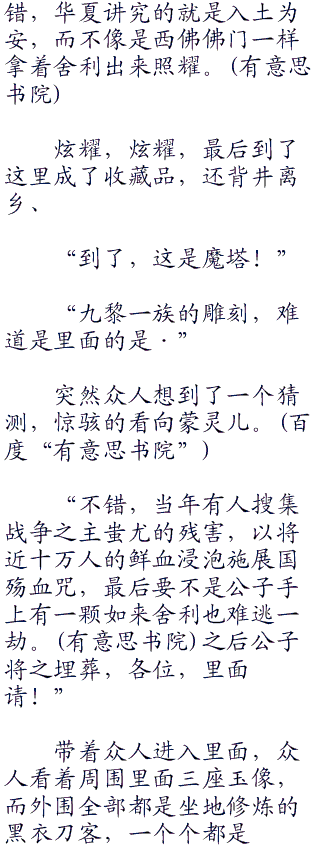 错，华夏讲究的就是入土为
安，而不像是西佛佛门一样
拿着舍利出来照耀。(有意思
书院)
炫耀，炫耀，最后到了
这里成了收藏品，还背井离
乡、
“到了，这是魔塔！”
“九黎一族的雕刻，难
道是里面的是·”
突然众人想到了一个猜
测，惊骇的看向蒙灵儿。(百
度“有意思书院”)
“不错，当年有人搜集
战争之主蚩尤的残害，以将
近十万人的鲜血浸泡施展国
殇血咒，最后要不是公子手
上有一颗如来舍利也难逃一
劫。(有意思书院)之后公子
将之埋葬，各位，里面
请！”
带着众人进入里面，众
人看着周围里面三座玉像，
而外围全部都是坐地修炼的
黑衣刀客，一个个都是